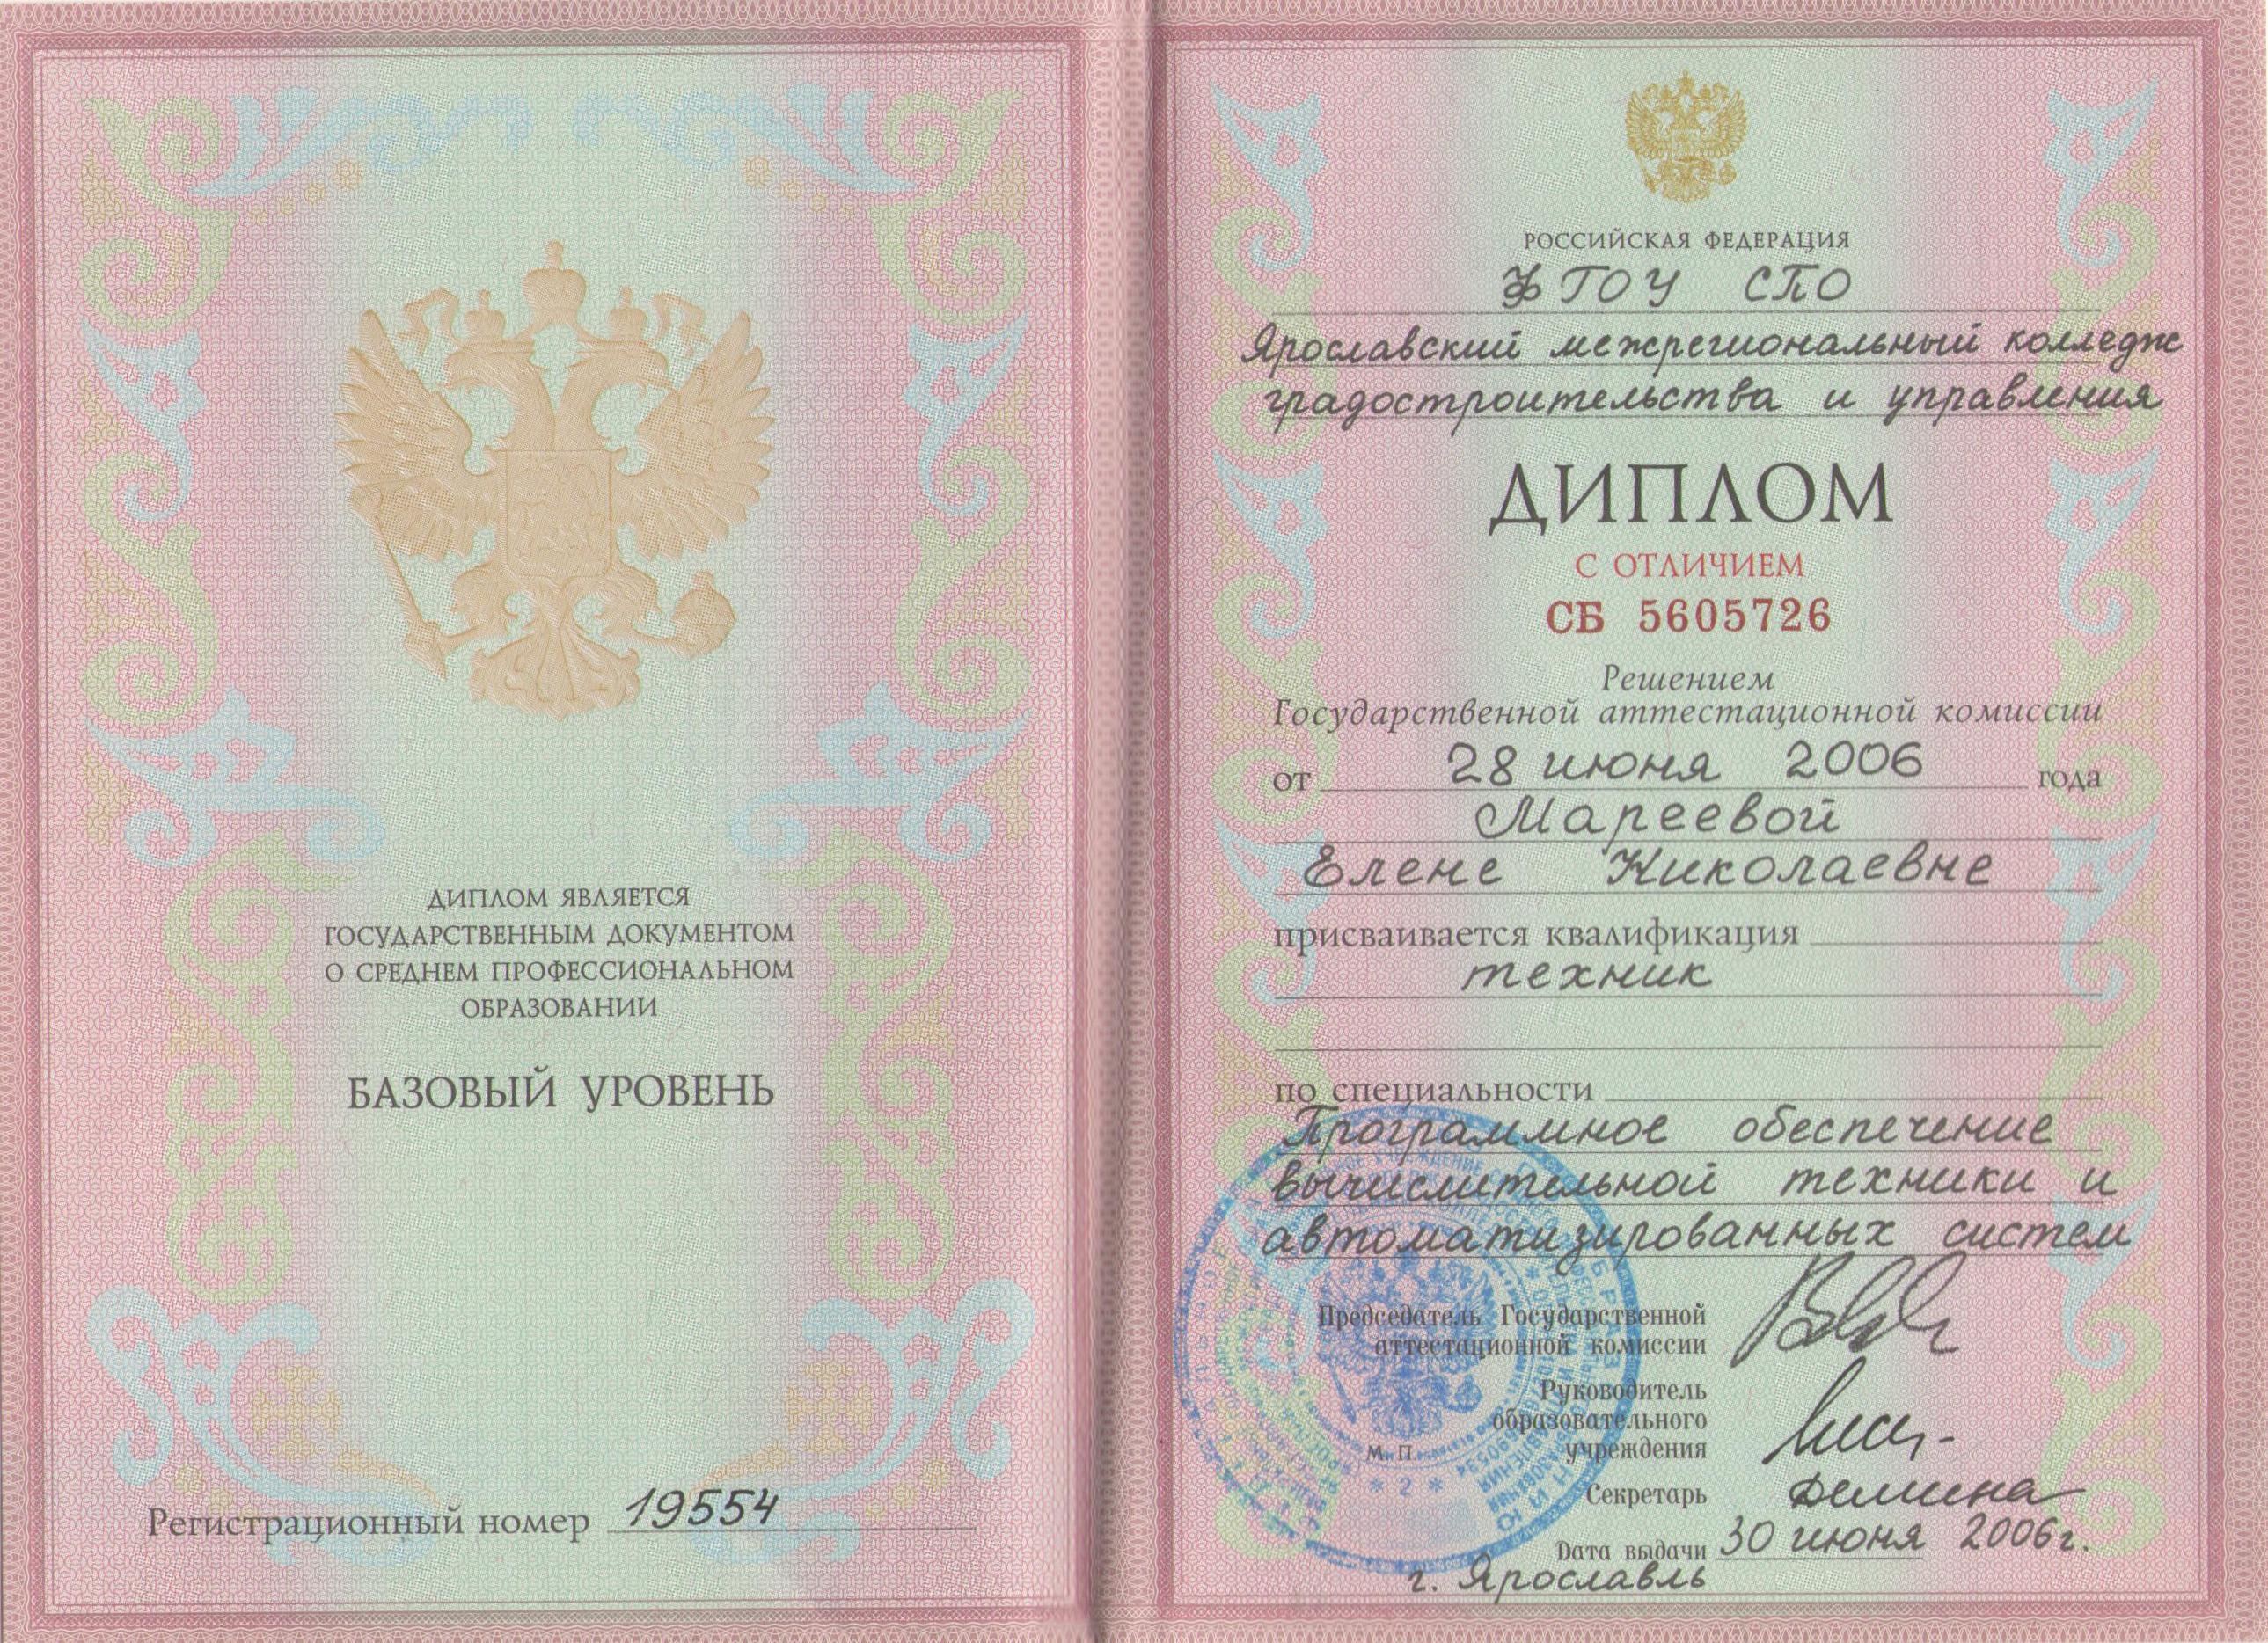 ДИПЛОМ ЯВЛЯЕТСЯ
ГОСУДАРСТВЕННЫМ ДОКУМЕНТОМ
О СРЕДНЕМ ПРОФЕССИОНАЛЬНОМ
ОБРАЗОВАНИИ
БАЗОВЫЙ УРОВЕНЬ
Регистрационный номер 19554
РОССИЙСКАЯ ФЕДЕРАЦИЯ
ФГОУ СПО
Ярославский межрегиональный колледж
градостроительства и управления
ДИПЛОМ
С ОТЛИЧИЕМ
СБ 5605726
Решением
Государственной аттестационной комиссии
от 28 июня 2006 года
Мареевой
Елене Николаевне
присваивается квалификация
техник
по специальности
Программное обеспечение
вычислительной техники и
автоматизированных систем
Председатель Государственной
аттестационной комиссии
Руководитель
образовательного
учреждения
М. П.
* 2 *
Секретарь Демина
Дата выдачи 30 июня 2006г.
г. Ярославль